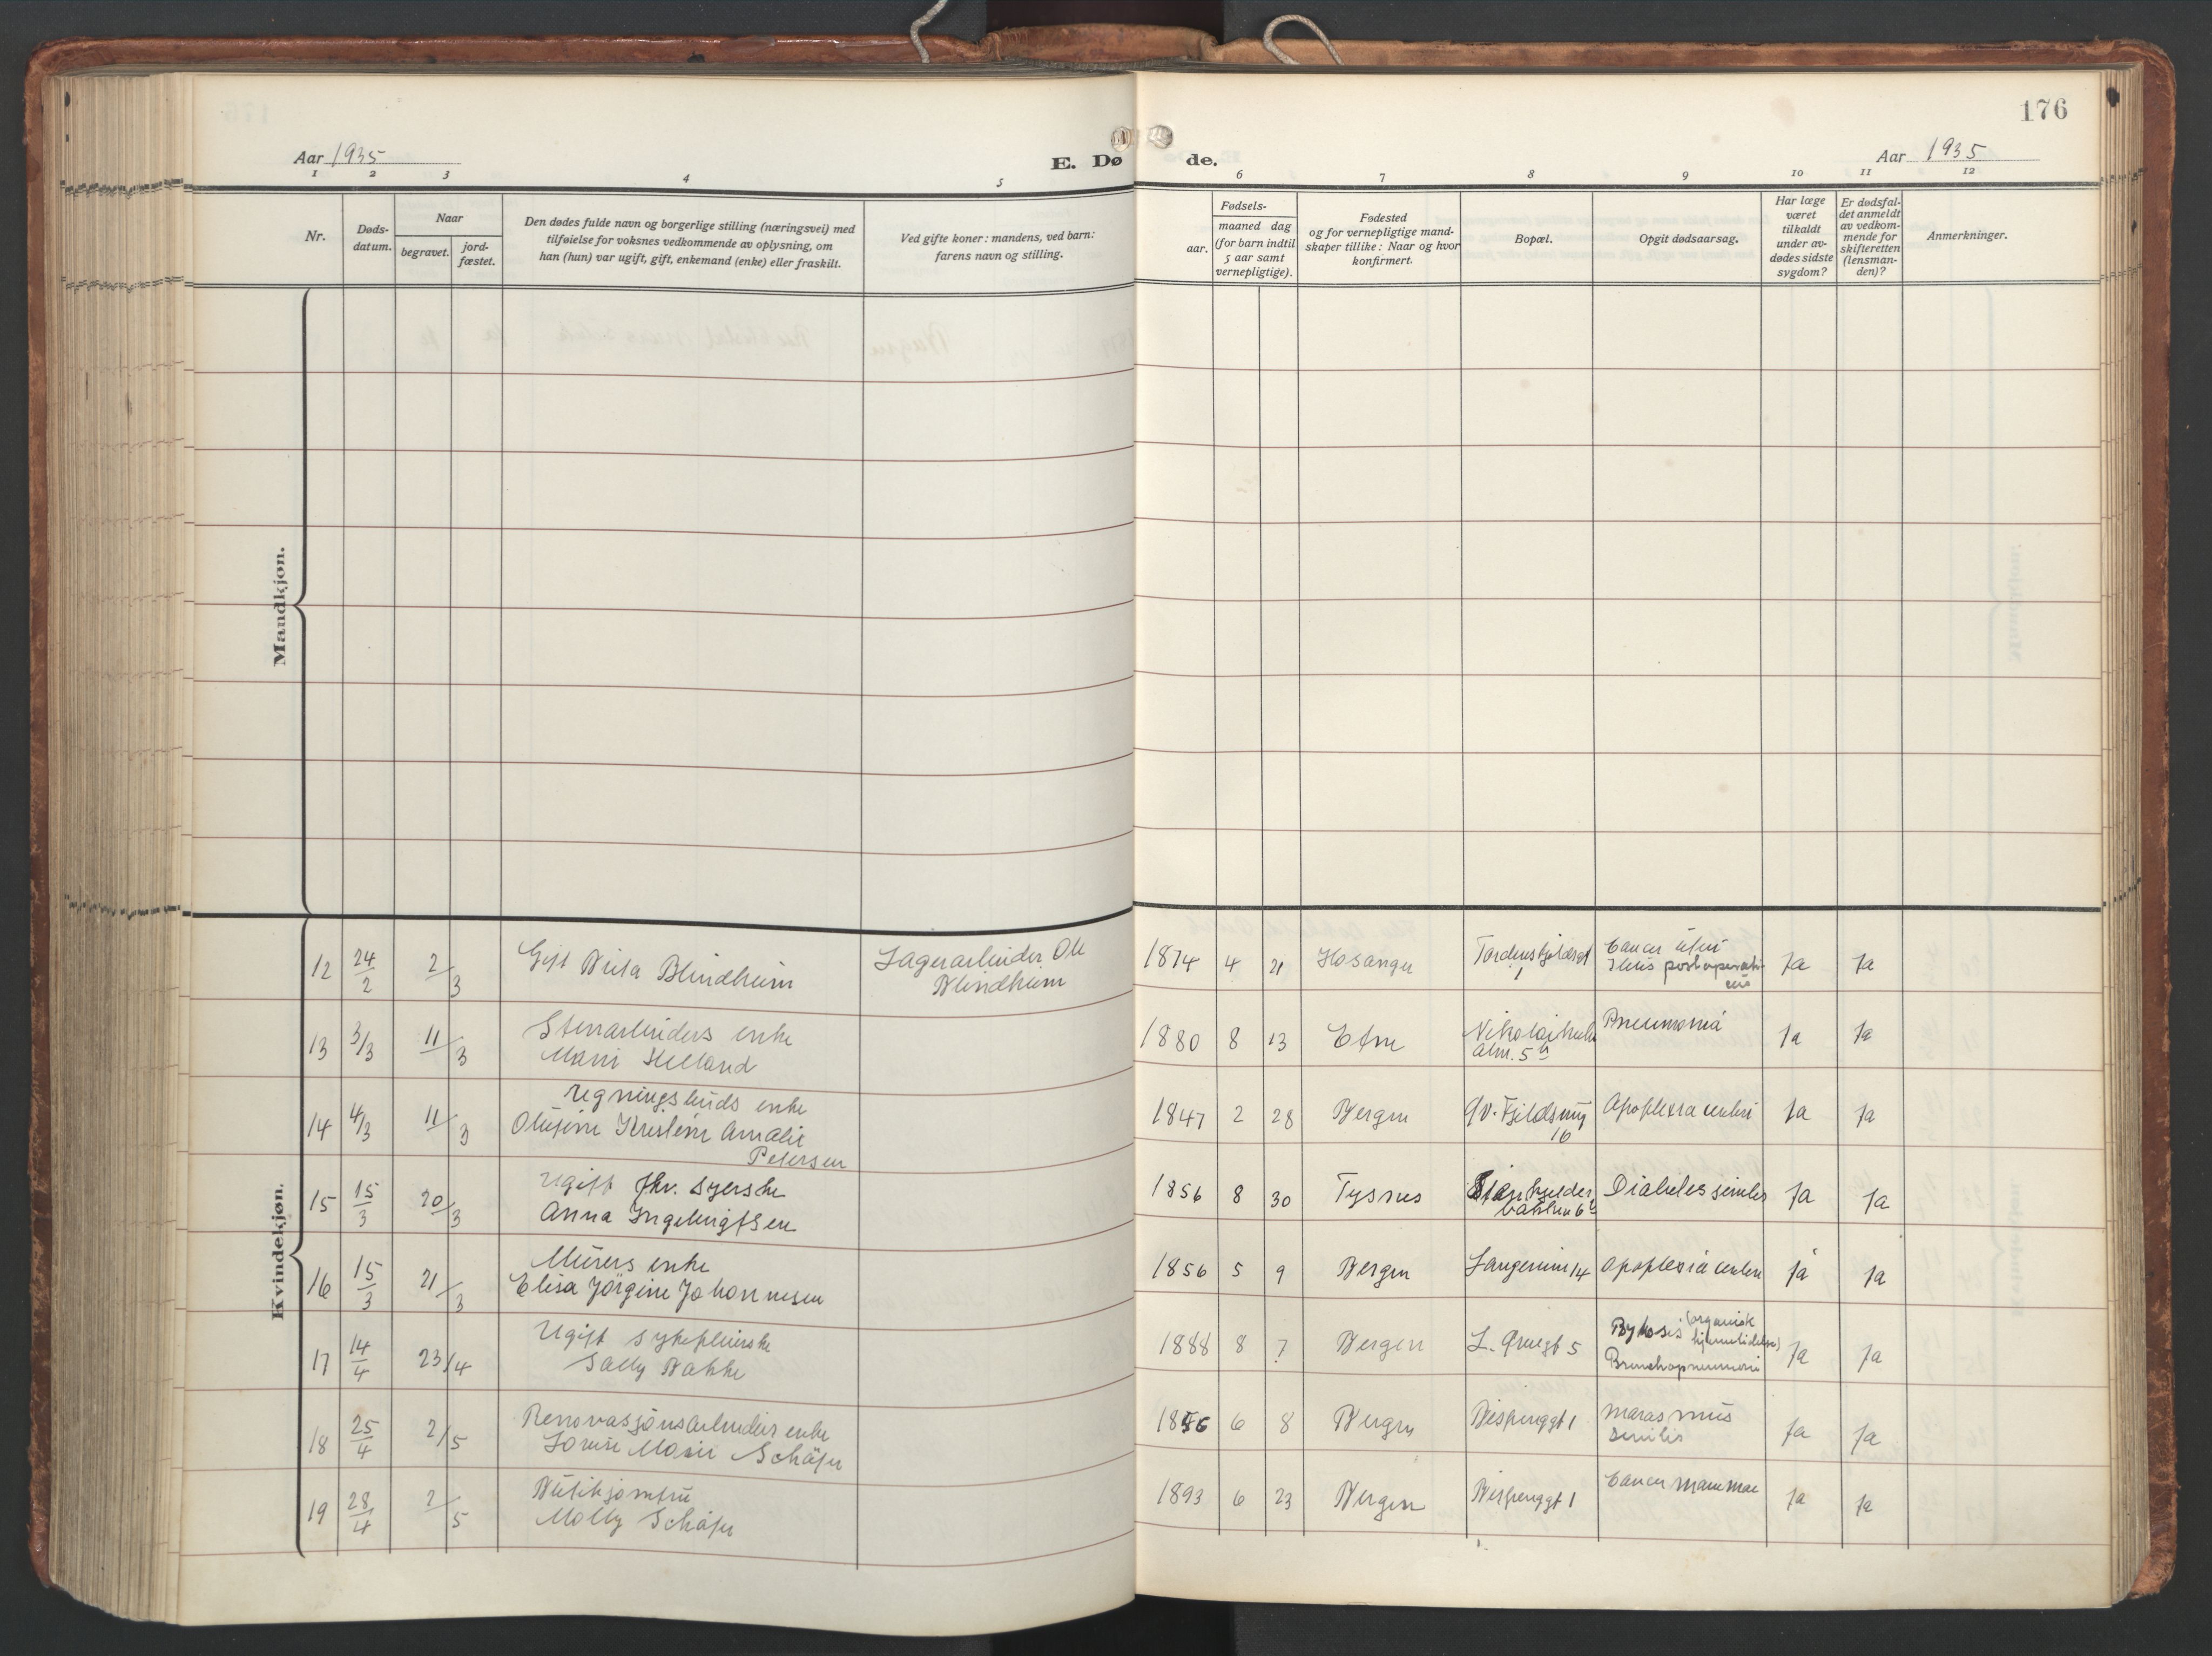 176
Aar 1935
E. Dø de.
Aar 1935
1 2 3 4 5 6 7 8 9 10 11 12
Nr.
Døds-
datum.
Naar
begravet.
jord-
fæstet.
Den dødes fulde navn og borgerlige stilling (næringsvei) med
tilføielse for voksnes vedkommende av oplysning, om
han (hun) var ugift, gift, enkemand (enke) eller fraskilt.
Ved gifte koner: mandens, ved barn:
farens navn og stilling.
Fødsels-
aar.
maaned dag
(for barn indtil
5 aar samt
vernepligtige).
Fødested
og for vernepligtige mand-
skaper tillike: Naar og hvor
konfirmert.
Bopæl.
Opgit dødsaarsag.
Har læge
været
tilkaldt
under av-
dødes sidste
sygdom?
Er dødsfal-
det anmeldt
av vedkom-
mende for
skifteretten
(lensman-
den)?
Anmerkninger.
Mandkjøn.
Kvindekjøn.
12 24/2 2/3 Gift Brita Blindheim
Lagerarbeider Ole
Blindheim
1874 4 21 Hosanger
Tordenskjoldsgt
1
Cancer uteri
Ileus postoperati-
vus
Ja Ja
13 3/3 11/3 Stenarbeiders enke
Marie Helland
1880 8 13 Etne
Nikolaikirke
alm. 5 b
Pneumonia
Ja Ja
14 4/3 11/3 regningsbuds enke
Olufine Kristine Amalie
Petersen
1847 2 28 Bergen
16
Apoplexia cerebri
Ja Ja
15 15/3 20/3 Ugift fhv. syerske
Anna Ingebrigtsen
1856 8 30 Tysnes
bakken 6 b
Diabetes senilis
Ja Ja
16 15/3 21/3 Murers enke
Elisa Jørgine Johannesen
1856 5 9 Bergen
14
Apoplexia cerebri
Ja Ja
17 14/4 23/4 Ugift sykepleierske
Sally Bakke
1888 8 7 Bergen
L. Øvregt 5
(organisk
hjernelidelse)
Bronchopneumoni
Ja Ja
18 25/4 2/5 Renovasjonsarbeiders enke
Lovise Marie Schäfer
1856 6 8 Bergen
Bispenggt 1
Marasmus
senilis
Ja Ja
19 28/4 2/5 Butikjomfru
Molly Schäfer
1893 6 23 Bergen
Bispenggt 1
Cancer mammae
Ja Ja